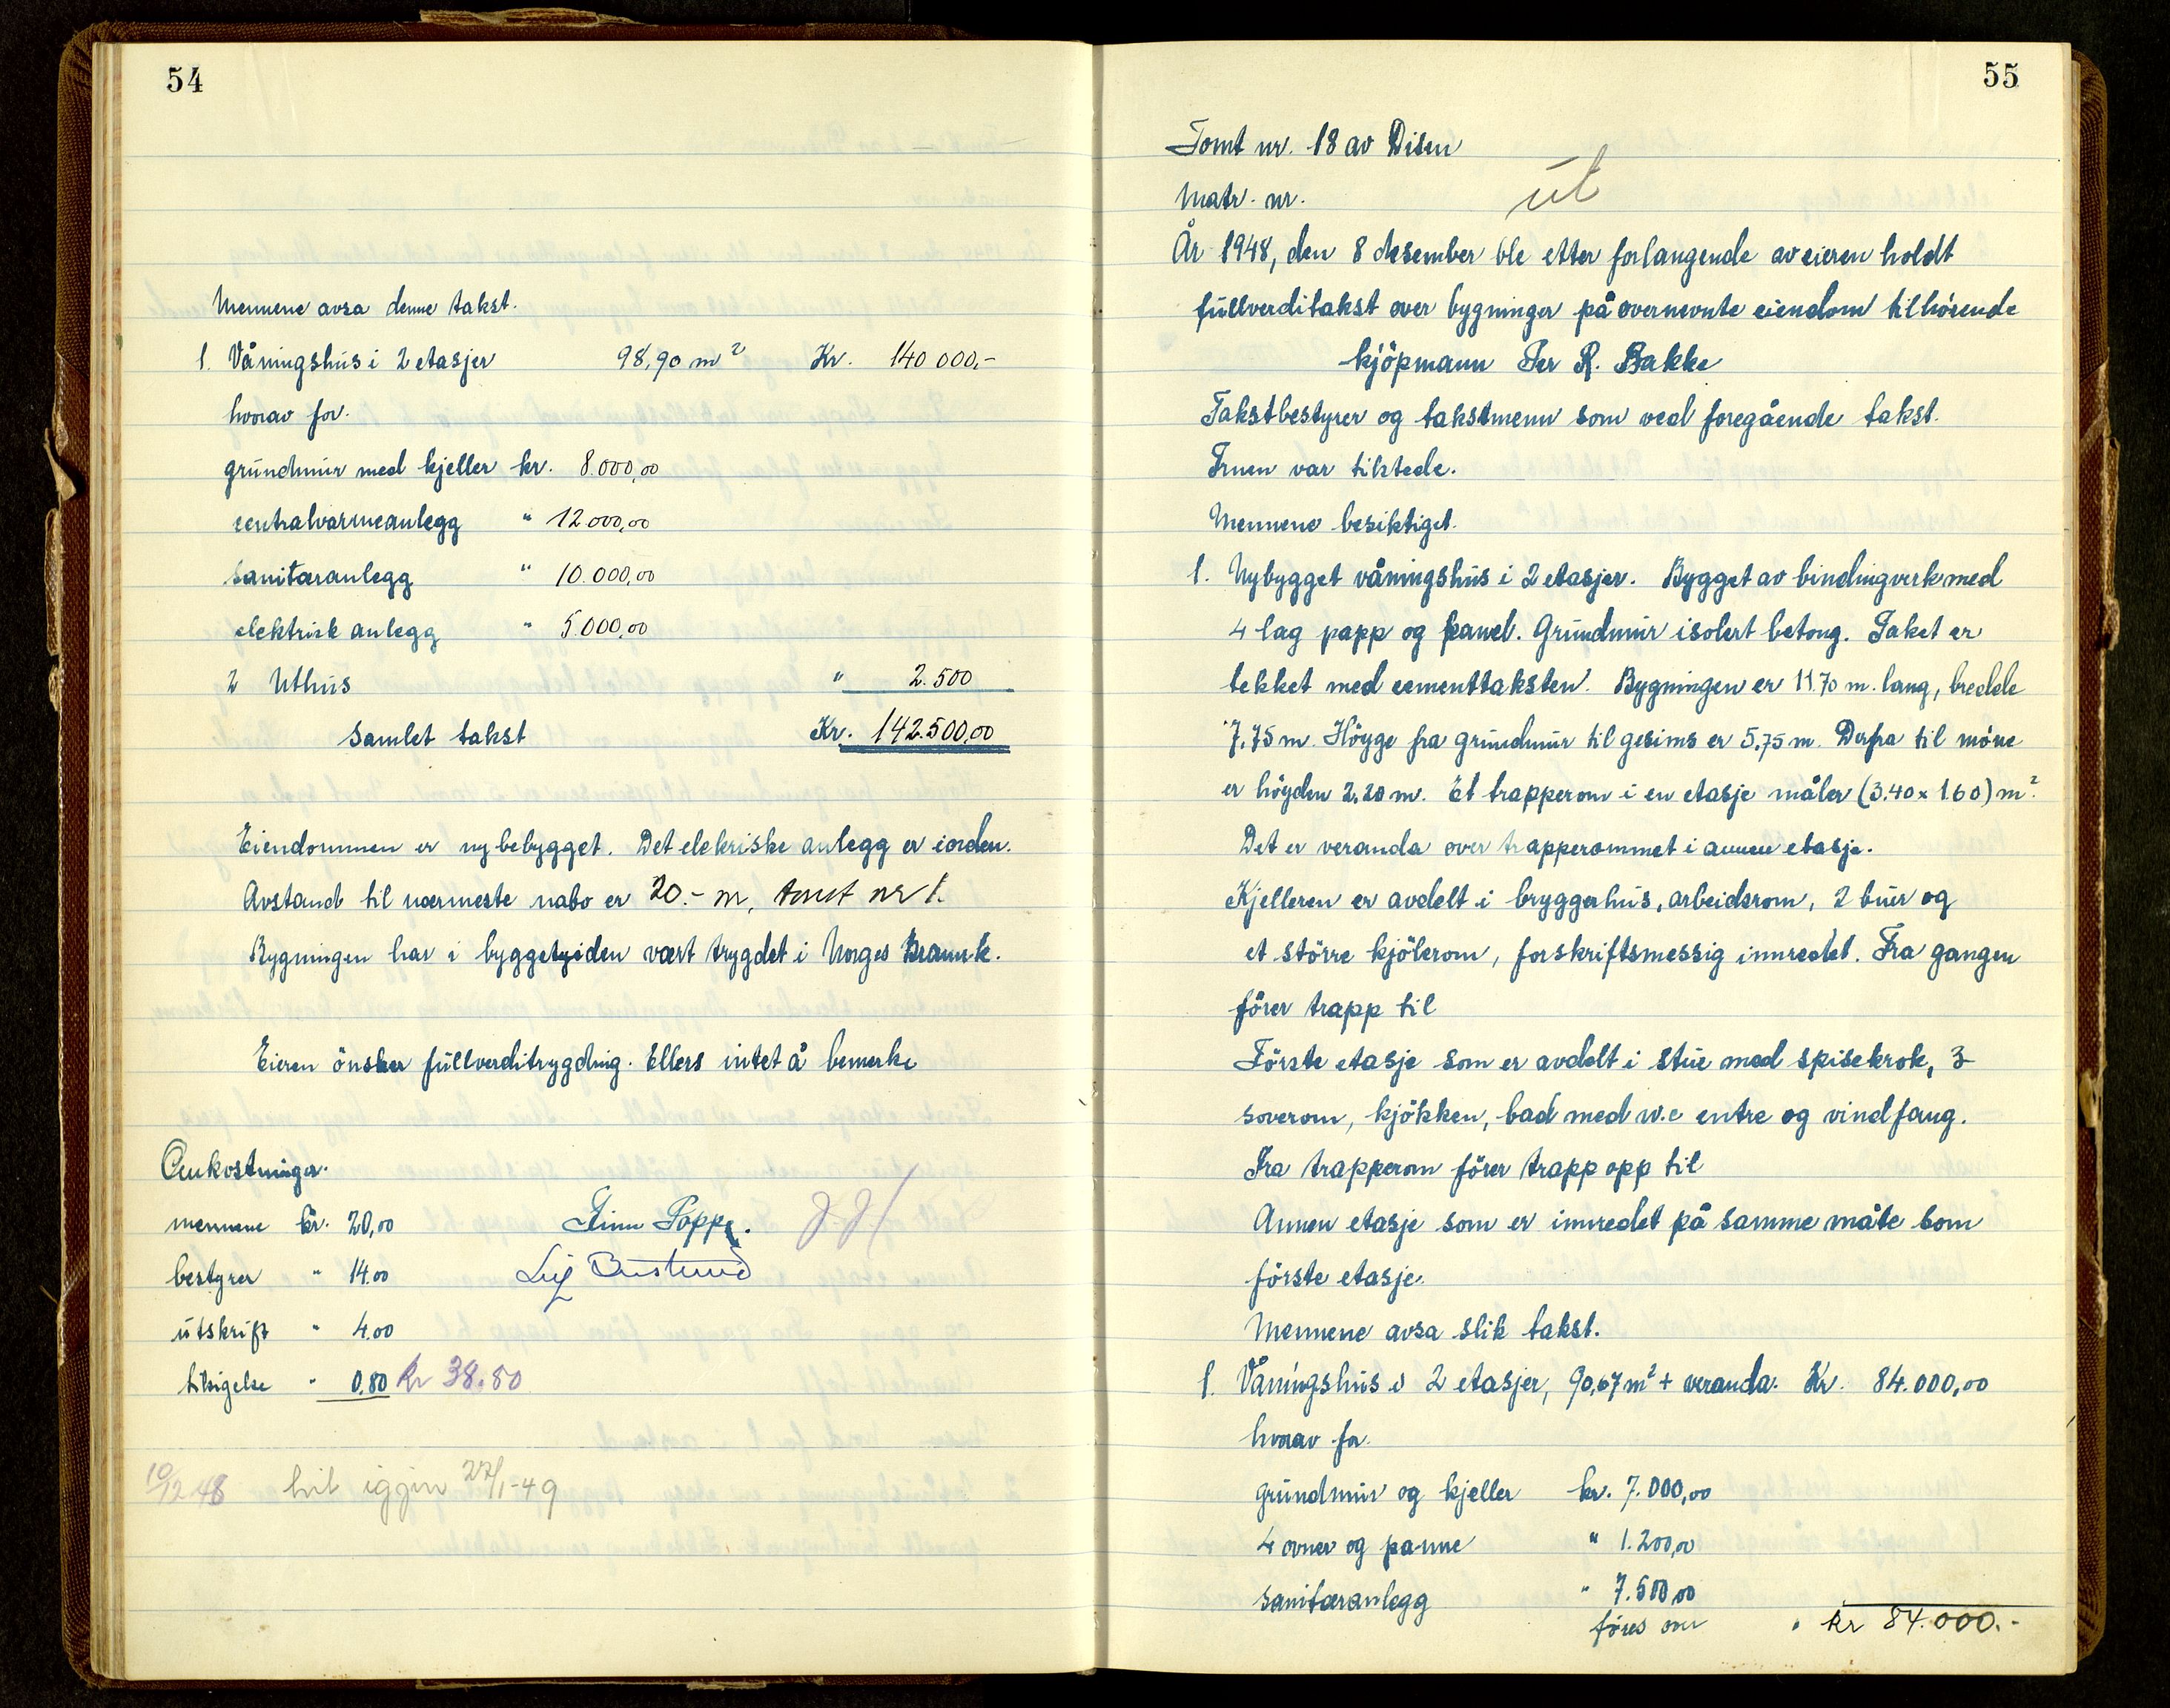 54
Mennene avsa denne takst.
1. Våningshus i 2 etasjer 98,90 m² Kr. 140 000,-
hvorav for.
grundmur med kjeller kr. 8.000,00
centralvarmeanlegg " 12.000,00
sanitæranlegg " 10.000,00
elektrisk anlegg " 5.000,00
2 Uthus " 2.500
Samlet takst Kr. 142.500,00
Eiendommen er nybebygget. Det elekriske anlegg er iorden.
Avstand til nærmeste nabo er 20.- m, tomt nr 1.
Bygningen har i byggetyiden vært trygdet i Norges Brannk.
Eieren önsker fullverditrygding. Ellers intet å bemerke
Omkostninger.
mennene kr. 20,00 Finn Poppe.
bestyrer " 14.00
utskrift " 4.00
tilsigelse " 0,80 Kr 38.80
10/12 48 27/1-49
55
Tomt nr. 18 av Disen
Matr. nr. ut
År 1948, den 8 desember ble etter forlangende av eieren holdt
fullverditakst over bygninger på overnevnte eiendom tilhörende
kjöpmann Per R. Bakke
Takstbestyrer og takstmenn som ved foregående takst.
Fruen var tilstede.
Mennene besiktiget.
1. Nybygget våningshus i 2 etasjer. Bygget av bindingverk med
4 lag papp og panel. Grundmur isolert betong. Taket er
tekket med cementtaksten. Bygningen er 11.70 m. lang, bredde
7,75 m. Höyge fra grundmur til gesims er 5,75 m. Derfra til möne
er höyden 2,20 m. Et trapperom i en etasje måler (3.40 x 1.60) m².
Det er veranda over trapperommet i annen etasje.
Kjelleren er avdelt i bryggerhus, arbeidsrom, 2 buer og
et större kjölerom, forskriftsmessig innredet. Fra gangen
förer trapp til
Förste etasje som er avdelt i stue med spisekrok, 3
soverom, kjökken, bad med w.c entre og vindfang.
Fra trapperom förer trapp opp til
Annen etasje som er innredet på samme måte som
förste etasje.
Mennene avsa slik takst.
1. Våningshus i 2 etasjer, 90,67 m² + veranda. Kr. 84.000,00
hvorav for.
grundmur og kjeller kr. 7.000,00
4 ovner og panne " 1.200,00
sanitæranlegg " 7.500,00
föres over " kr 84.000.-